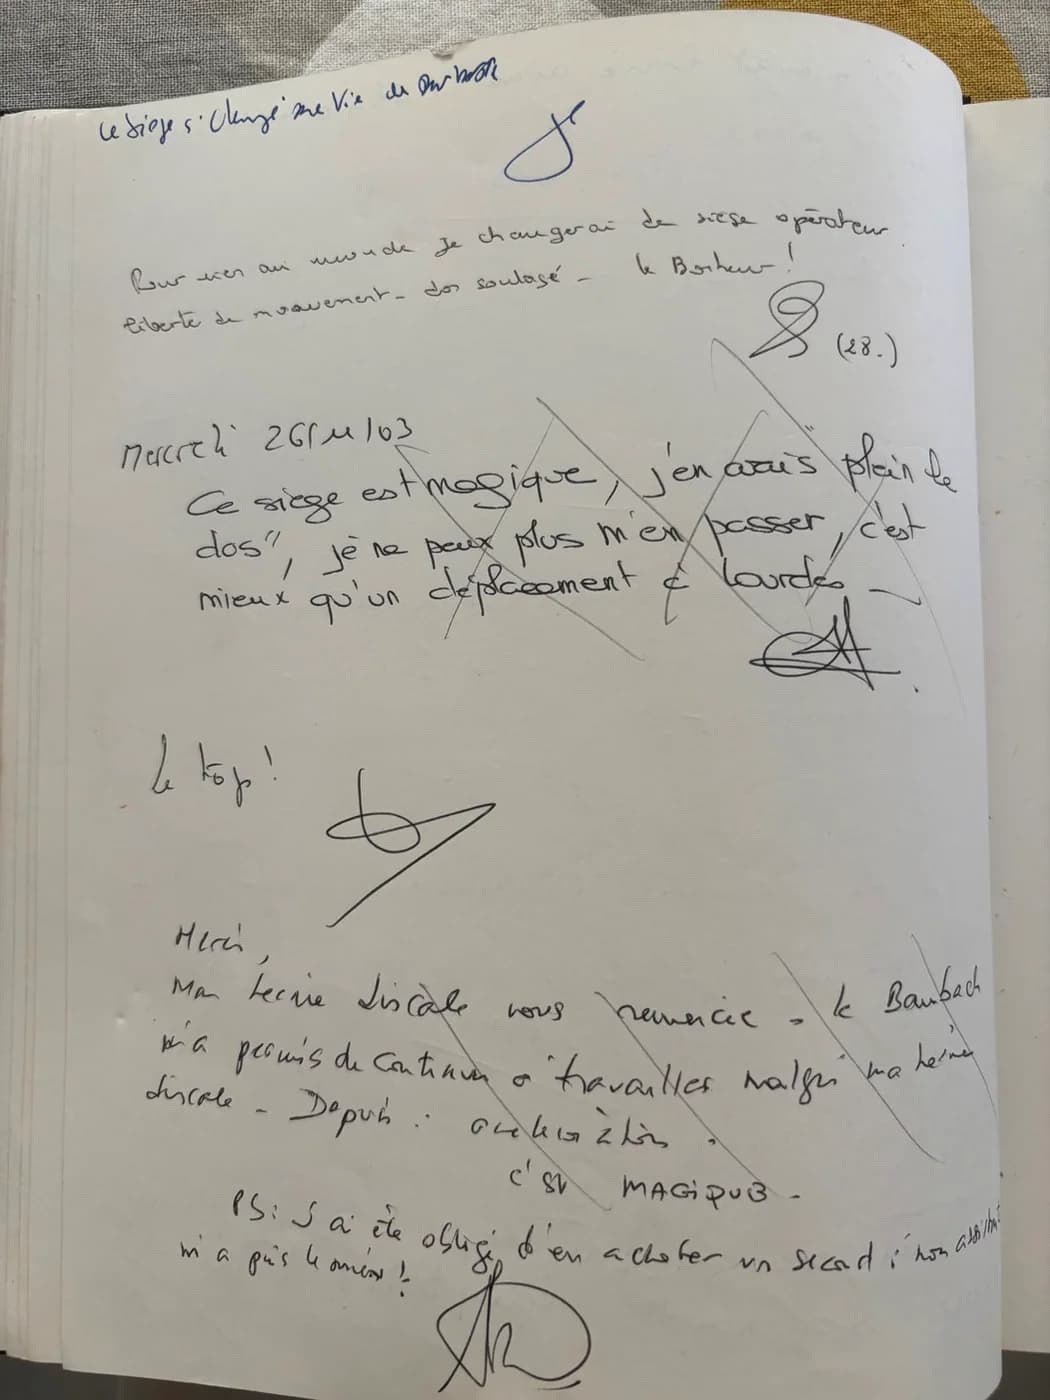 Le siège a changé ma vie de
Pour rien au monde je changerai de siège opérateur
liberté de mouvement - dos soulagé - le Bonheur !
(28.)
Mercredi 26/11/03
Ce siege est magique, j'en avais "plein le
dos", je ne peux plus m'en passer, c'est
mieux qu'un déplacement à Lourdes -
Le top !
Merci,
Ma hernie discale vous remercie - le Bambach
m'a permis de continuer à travailler malgré ma hernie
discale - Depuis : amélioration.
c'est MAGiQUE -
PS: J'ai été obligé d'en acheter un second ; mon assistante
m'a pris le mien !